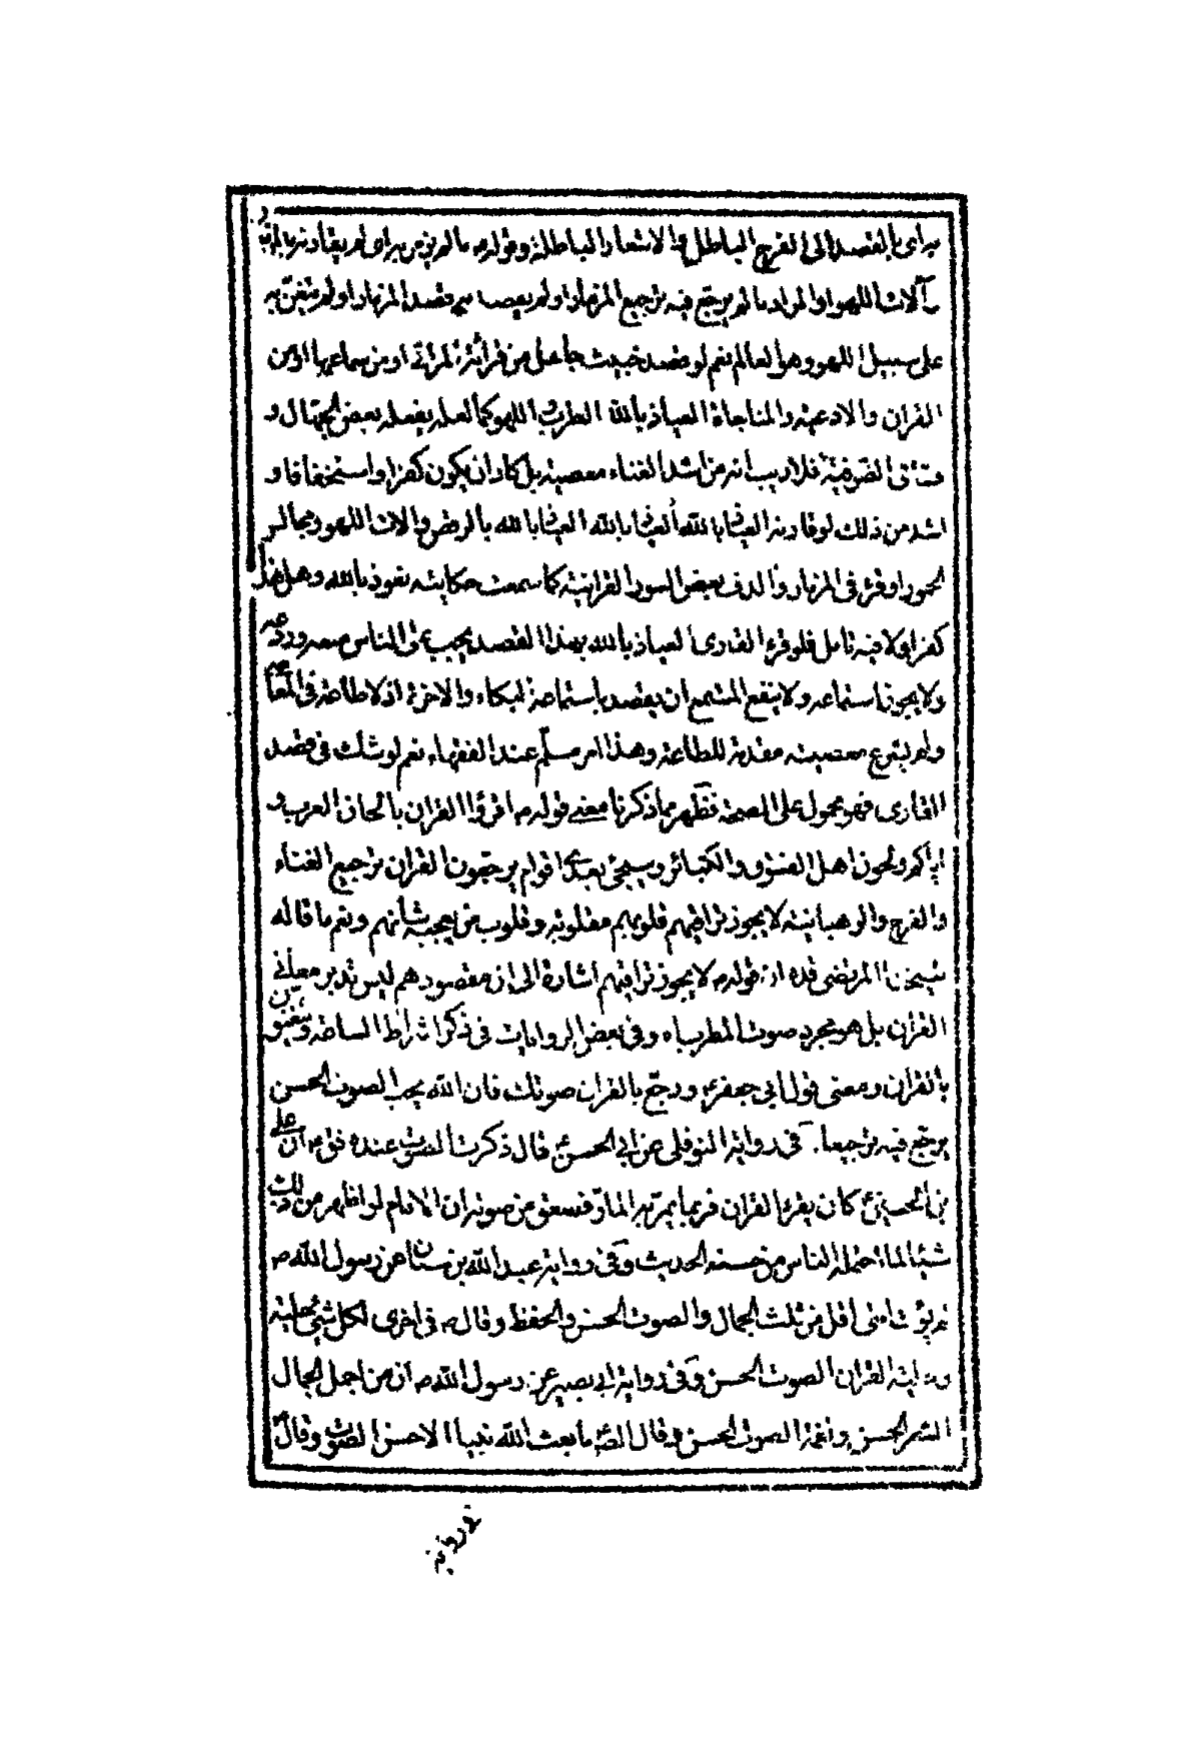 به اى بالقصد الى الفرح الباطل و الاشعار الباطلة و قوله ما لم يؤمر به اى لم يقارنه بالمزمار
و آلات اللهو او المراد ما لم يرجع فيه ترجيع المزمار او لم يعص به قصد المزمار او لم يتغن به
على سبيل اللهو و هو العالم نعم لو قصد خبيث جاهل من قرائة المراثى او من سماعها او من
القران و الادعية و المناجاة العياذ بالله الطرب و اللهو كما لعله يفعله بعض الجهال و
فساق الصوفية فلا ريب انه من اشد الغناء معصية بل كاد ان يكون كفرا و استخفافا و
اشد من ذلك لو قارنه العياذ بالله العياذ بالله العياذ بالله بالرقص و الات اللهو و مجالس
الخمور او قرء فى المزمار و الدف بعض السور القرانية كما سمعت حكايته نعوذ بالله و هل هذا
كفر ام لا فيه تامل فلو قرء القارى العياذ بالله بهذا القصد يجب على الناس منعه و ردعه
و لا يجوز استماعه و لا ينفع المستمع ان يقصد باستماعه البكاء و الاخرة اذ لا طاعة فى المعاصى
و لم يشرع معصيته مقدمة للطاعة و هذا امر مسلم عند الفقهاء نعم لو شك فى قصد
القارى فهو محمول على الصحة فظهر مما ذكرنا معنى قوله ص اقرؤا القران بالحان العرب و
اياكم و لحون اهل الفسوق و الكبائر و سيجئ بعدى اقوام يرجعون القران ترجيع الغناء
و النوح و الرهبانية لا يجوز تراقيهم قلوبهم مقلوبة و قلوب من يعجبه شأنهم و نعم ما قاله
شيخنا المرتضى قده ان قوله ص لا يجوز تراقيهم اشارة الى ان مقصودهم ليس تدبر معانى
القران بل هو مجرد صوت المطرب اه و فى بعض الروايات فى ذكر اشراط الساعة و يتغنون
بالقران و معنى قول ابى جعفر ع و رجع بالقران صوتك فان الله يحب الصوت الحسن
يرجع فيه ترجيعا. و فى رواية النوفلى عن ابى الحسن ع قال ذكرت الصوت عنده فق ع ان على
بن الحسين ع كان يقرء القران فربما يمر به المار فصعق من صوته ان الامام لو اظهر من ذلك
شيئا لما احتمله الناس من حسنه الحديث و فى رواية عبد الله بن سنان عن رسول الله ص
لم يؤت امتى اقل من ثلث الجمال و الصوت الحسن و الحفظ و قال ص فى اخرى لكل شئ حلية
و حلية القران الصوت الحسن و فى رواية ابى بصير عن رسول الله ص ان من اجمل الجمال
الشعر الحسن و نغمة الصوت الحسن و قال الص ع ما بعث الله نبيا الا حسن الصوت و قال ص
فى رواية